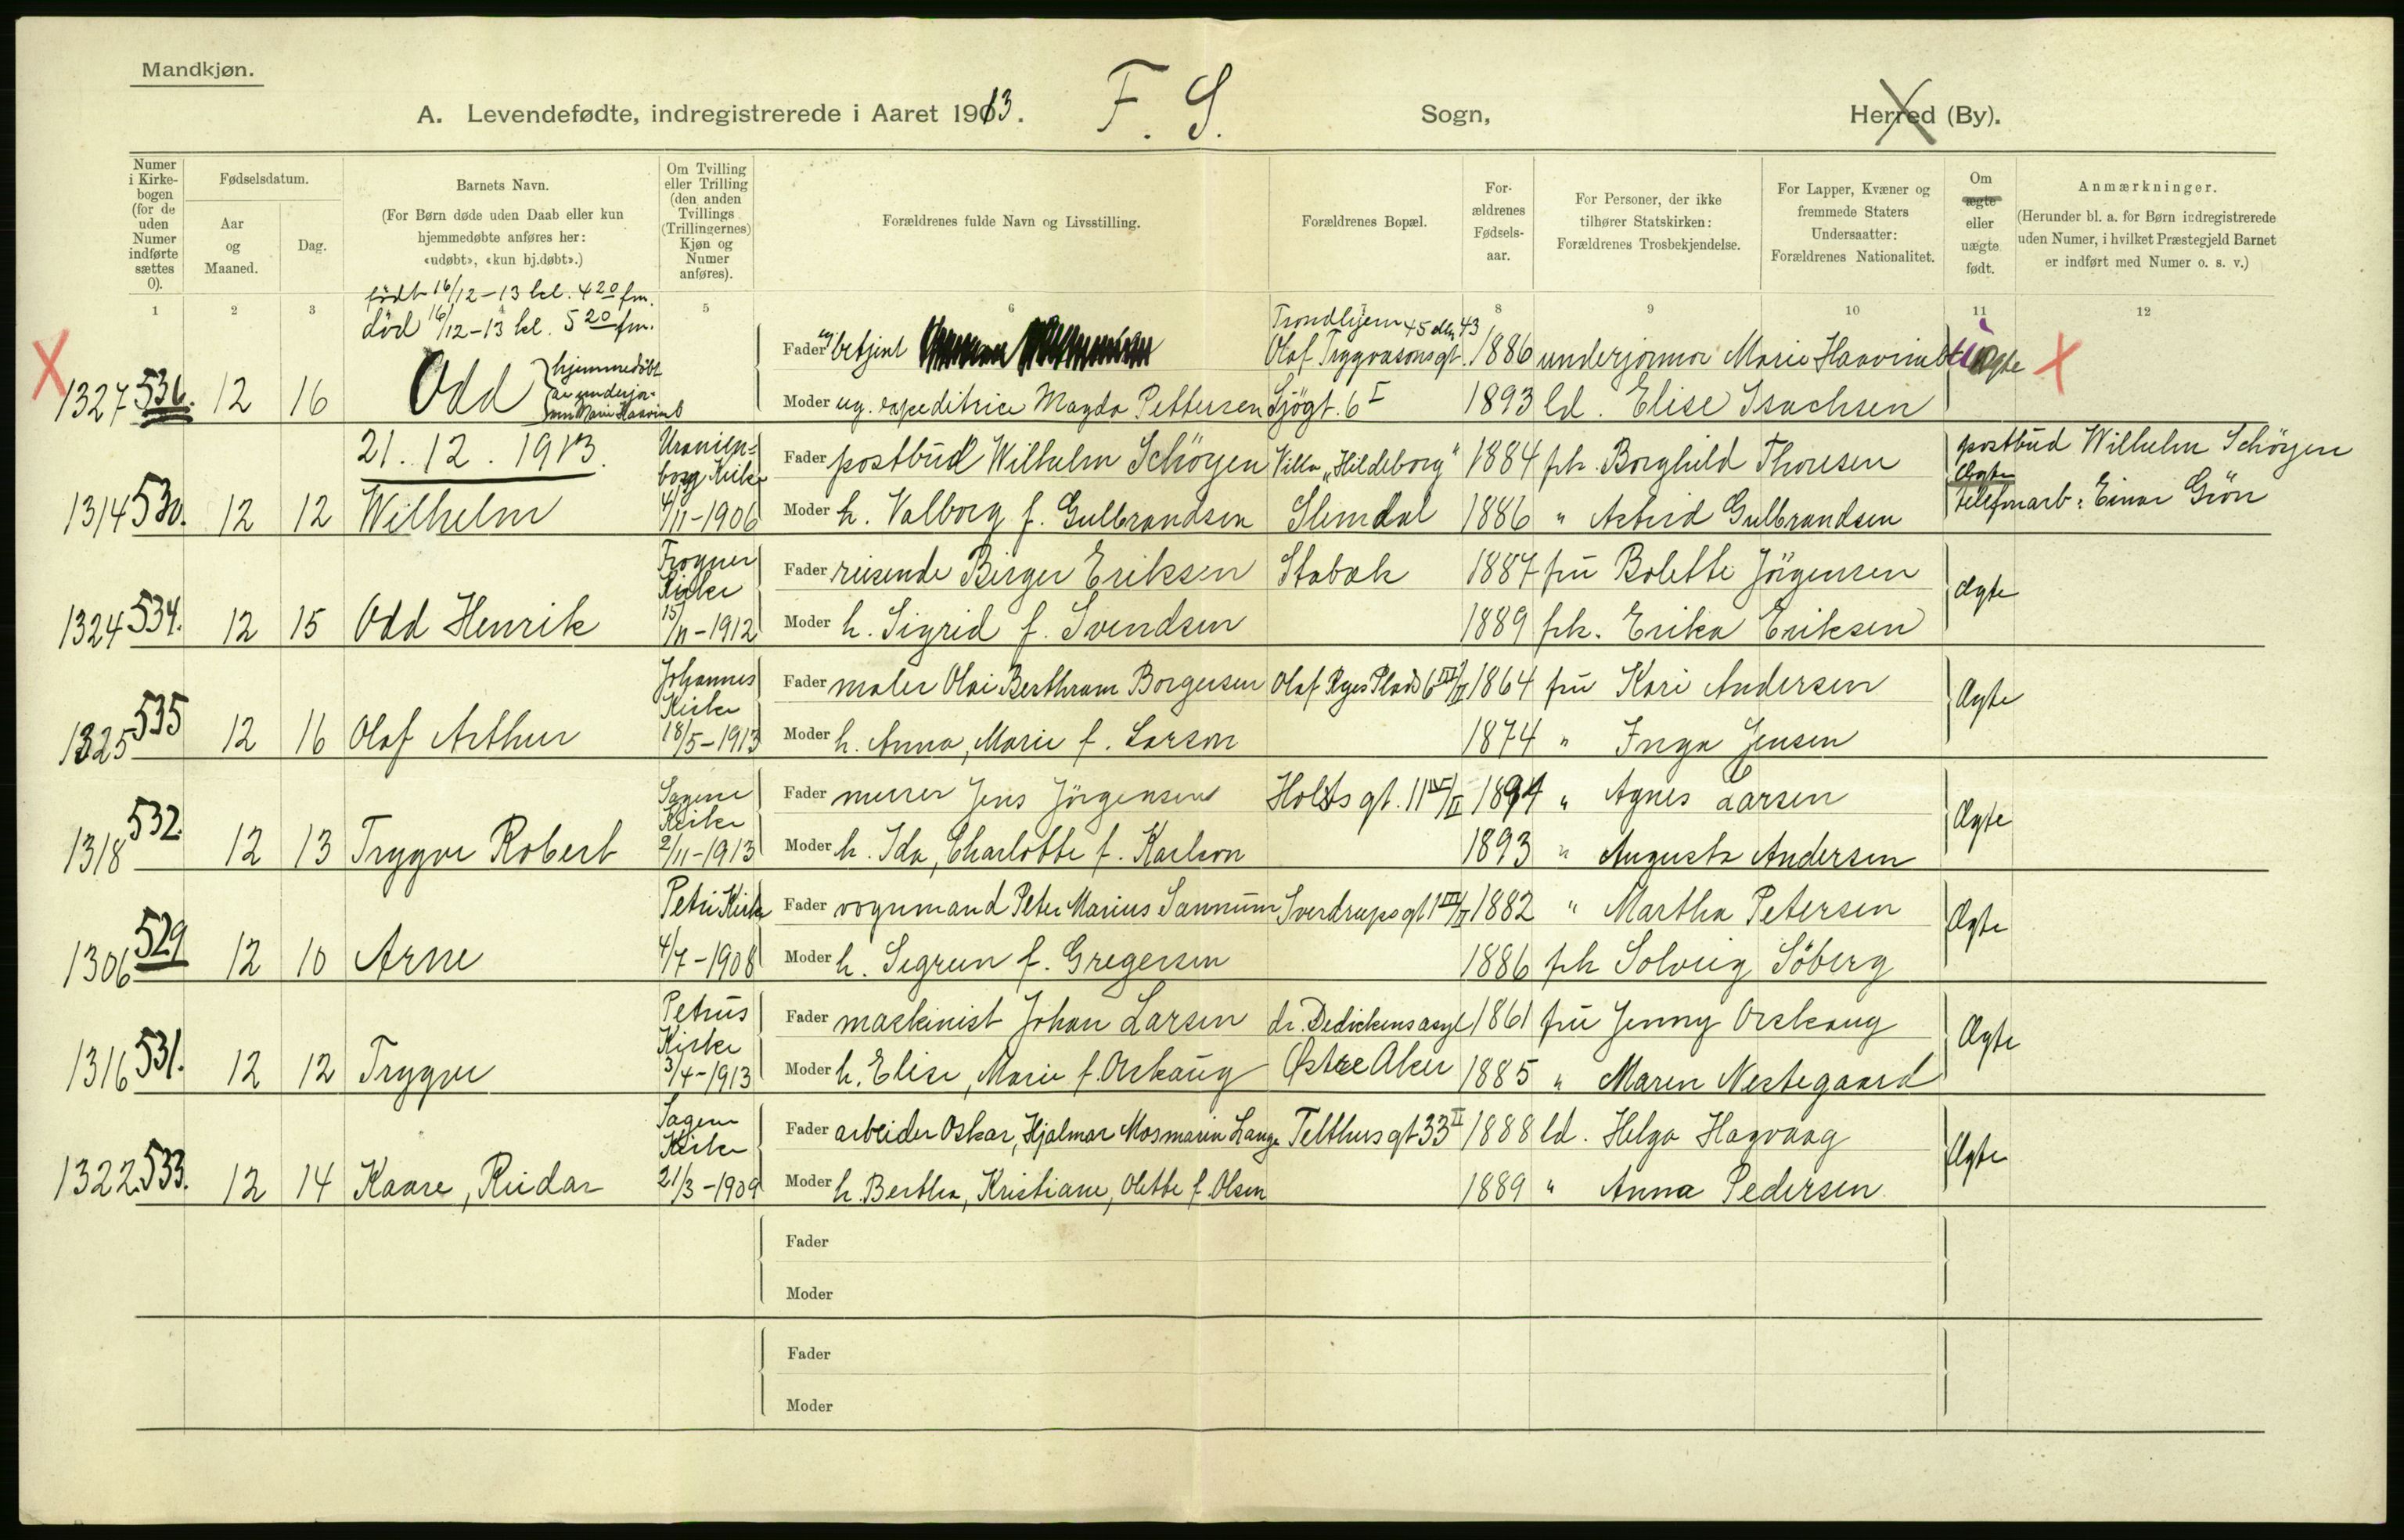 Mandkjøn.
A. Levendefødte, indregistrerede i Aaret 1913. F. S. Sogn, Herred (By).
Numer i Kirkebogen (for de uden Numer indførte sættes 0).
Fødselsdatum.
Aar og Maaned.
Dag.
Barnets Navn.
(For Børn døde uden Daab eller kun hjemmedøbte anføres her: «udøbt», «kun hj.døbt».)
Om Tvilling eller Trilling (den anden Tvillings (Trillingernes) Kjøn og Numer anføres).
Forældrenes fulde Navn og Livsstilling.
Forældrenes Bopæl.
Forældrenes Fødselsaar.
For Personer, der ikke tilhører Statskirken: Forældrenes Trosbekjendelse.
For Lapper, Kvæner og fremmede Staters Undersaatter: Forældrenes Nationalitet.
Om ægte eller uægte født.
Anmærkninger.
(Herunder bl. a. for Børn indregistrerede uden Numer, i hvilket Præstegjeld Barnet er indført med Numer o. s. v.)
1 2 3 4 5 6 8 9 10 11 12
født 16/12-13 kl. 4 20 fm.
død 16/12-13 kl. 5 20 fm.
X 1327 536. 12 16 Odd hjemmedöbt av underjor-
Fader ug. betjent Trondhjem 45 43 Olaf Tryggvasonsgt. 1886 underjormor Marie uægte X
Moder ug. expeditrice Magda Pettersen Sjögt. 6 I 1893 ld. Elise Isachsen
21. 12. 1913.
1314 530. 12 12 Wilhelm Uranienborg Kirke 4/11-1906
Fader postbud Wilhelm Schöyen Villa "Hildeborg" 1884 frk. Borghild Thoresen postbud Wilhelm Schöyen
Ægte
Moder h. Valborg f. Gulbrandsen Slemdal 1886 " Astrid Gulbrandsen telefonarb: Einar Grön
1324 534. 12 15 Odd Henrik Frogner Kirke 15/11-1912
Fader reisende Birger Eriksen Stabæk 1887 fru Bolette Jörgensen Ægte
Moder h. Sigrid f. Svendsen 1889 frk. Erika Eriksen
1325 535 12 16 Olaf Arthur Johannes Kirke 18/5-1913
Fader maler Olai Berthram Borgersen Olaf Ryes Plads 6 1864 fru Kari Andersen Ægte
Moder h. Anna, Marie f. Larson 1874 " Inga Jensen
1318 532. 12 13 Trygve Robert Sagene Kirke 2/11-1913
Fader murer Jens Jörgensen Holsts gt. 11 1894 " Agnes Larsen Ægte
Moder h. Ida, Charlotte f. Karlson 1893 " Augusta Andersen
1306 529 12 10 Arne Petri Kirke 4/7-1908
Fader vognmand Peter Marius Sannum Sverdrupsgt 1 1882 " Martha Petersen Ægte
Moder h. Sigrun f. Gregersen 1886 frk Solveig Söberg
1316 531. 12 12 Trygve Petrus Kirke 3/4-1913
Fader maskinist Johan Larsen dr. Dedichens asyl 1861 fru Jenny Orskaug Ægte
Moder h. Elise, Marie f. Orskaug Østre Aker 1885 " Maren Nestegaard
1322 533. 12 14 Kaare, Reidar Sagene Kirke 21/3-1909
Fader arbeider Oskar, Hjalmar Mosmarin Lange Telthusgt 33 II 1888 ld. Helga Hagvaag Ægte
Moder h. Bertha, Kristiane, Olette f. Olsen 1889 " Anna Pedersen
Fader
Moder
Fader
Moder